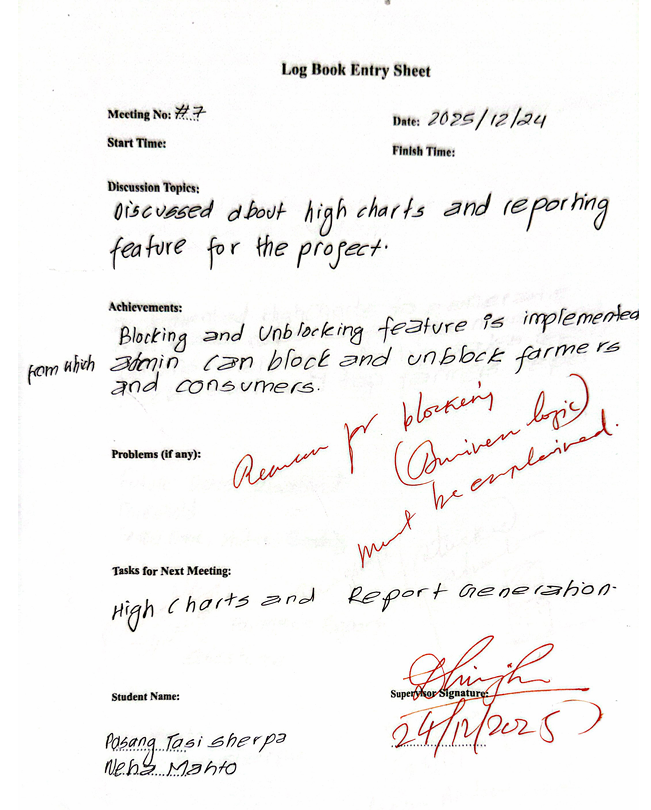 Log Book Entry Sheet
Meeting No: #7
Date: 2025/12/24
Start Time:
Finish Time:
Discussion Topics:
Discussed about high charts and reporting
feature for the project.
Achievements:
Blocking and Unblocking feature is implemented
from which admin can block and unblock farmers
and consumers.
Reason for blocking
(Business logic)
must be explained.
Problems (if any):
Tasks for Next Meeting:
High Charts and Report Generation.
Student Name:
Supervisor Signature:
24/12/2025
Pasang Tasi Sherpa
Neha Mahto